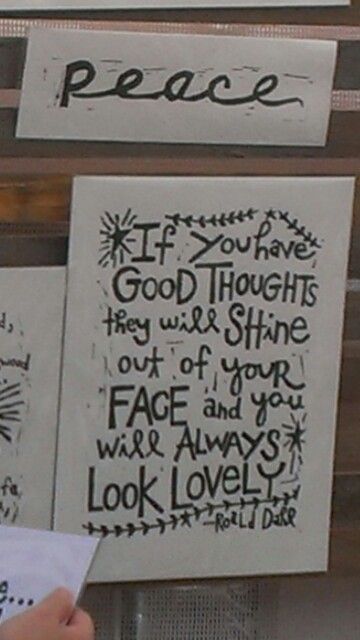 peace
If you have
GOOD THOUGHTS
they will SHine
out of youR
FACE and you
will ALWAYS
LOOK LOVELY
-RoaLd DahL